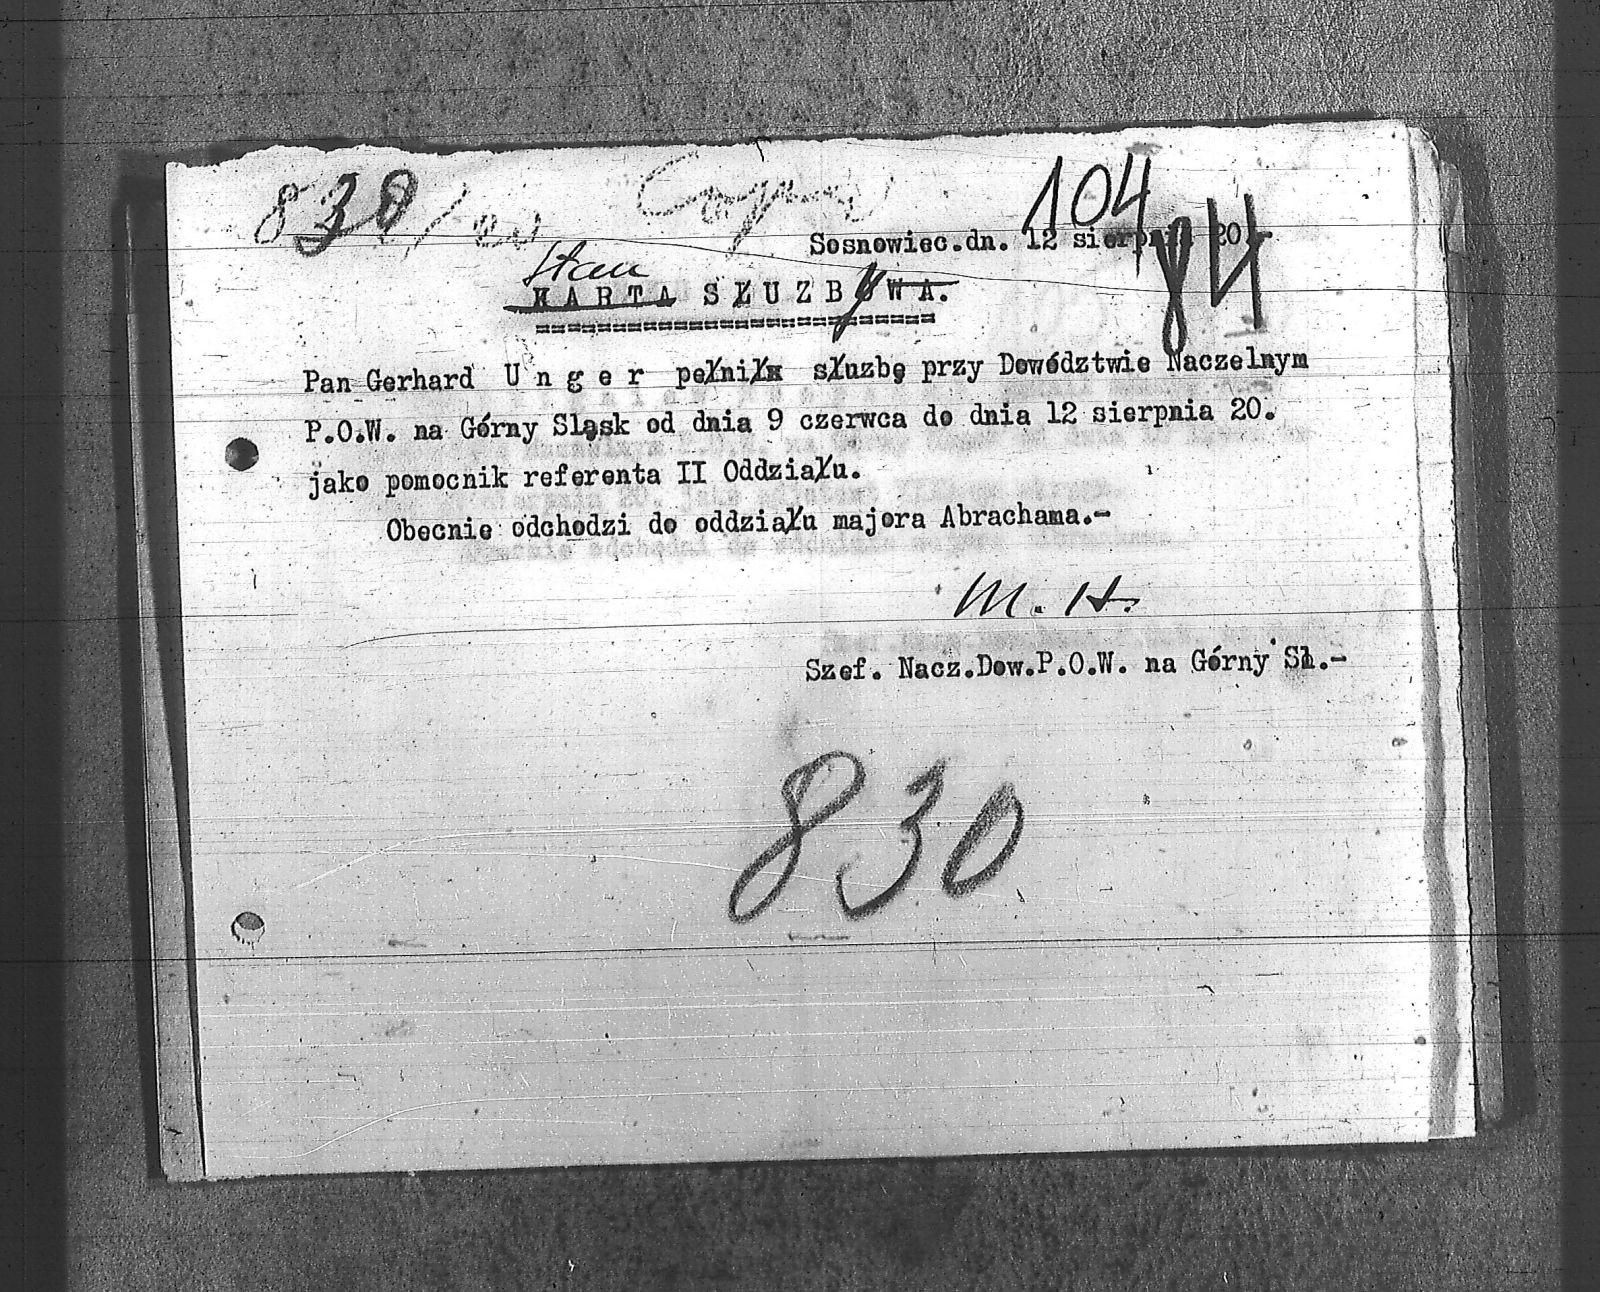 830/20
104
Sosnowiec.dn. 12 sierpnia 20.
84
Stan
KARTA SŁUZBOWA.
Pan Gerhard Unger pełnił służbę przy Dowództwie Naczelnym
P.O.W. na Górny Sląsk od dnia 9 czerwca do dnia 12 sierpnia 20.
jako pomocnik referenta II Oddziału.
Obecnie odchodzi do oddziału majora Abrachama.-
M. H.
Szef. Nacz.Dow.P.O.W. na Górny Sl.-
830